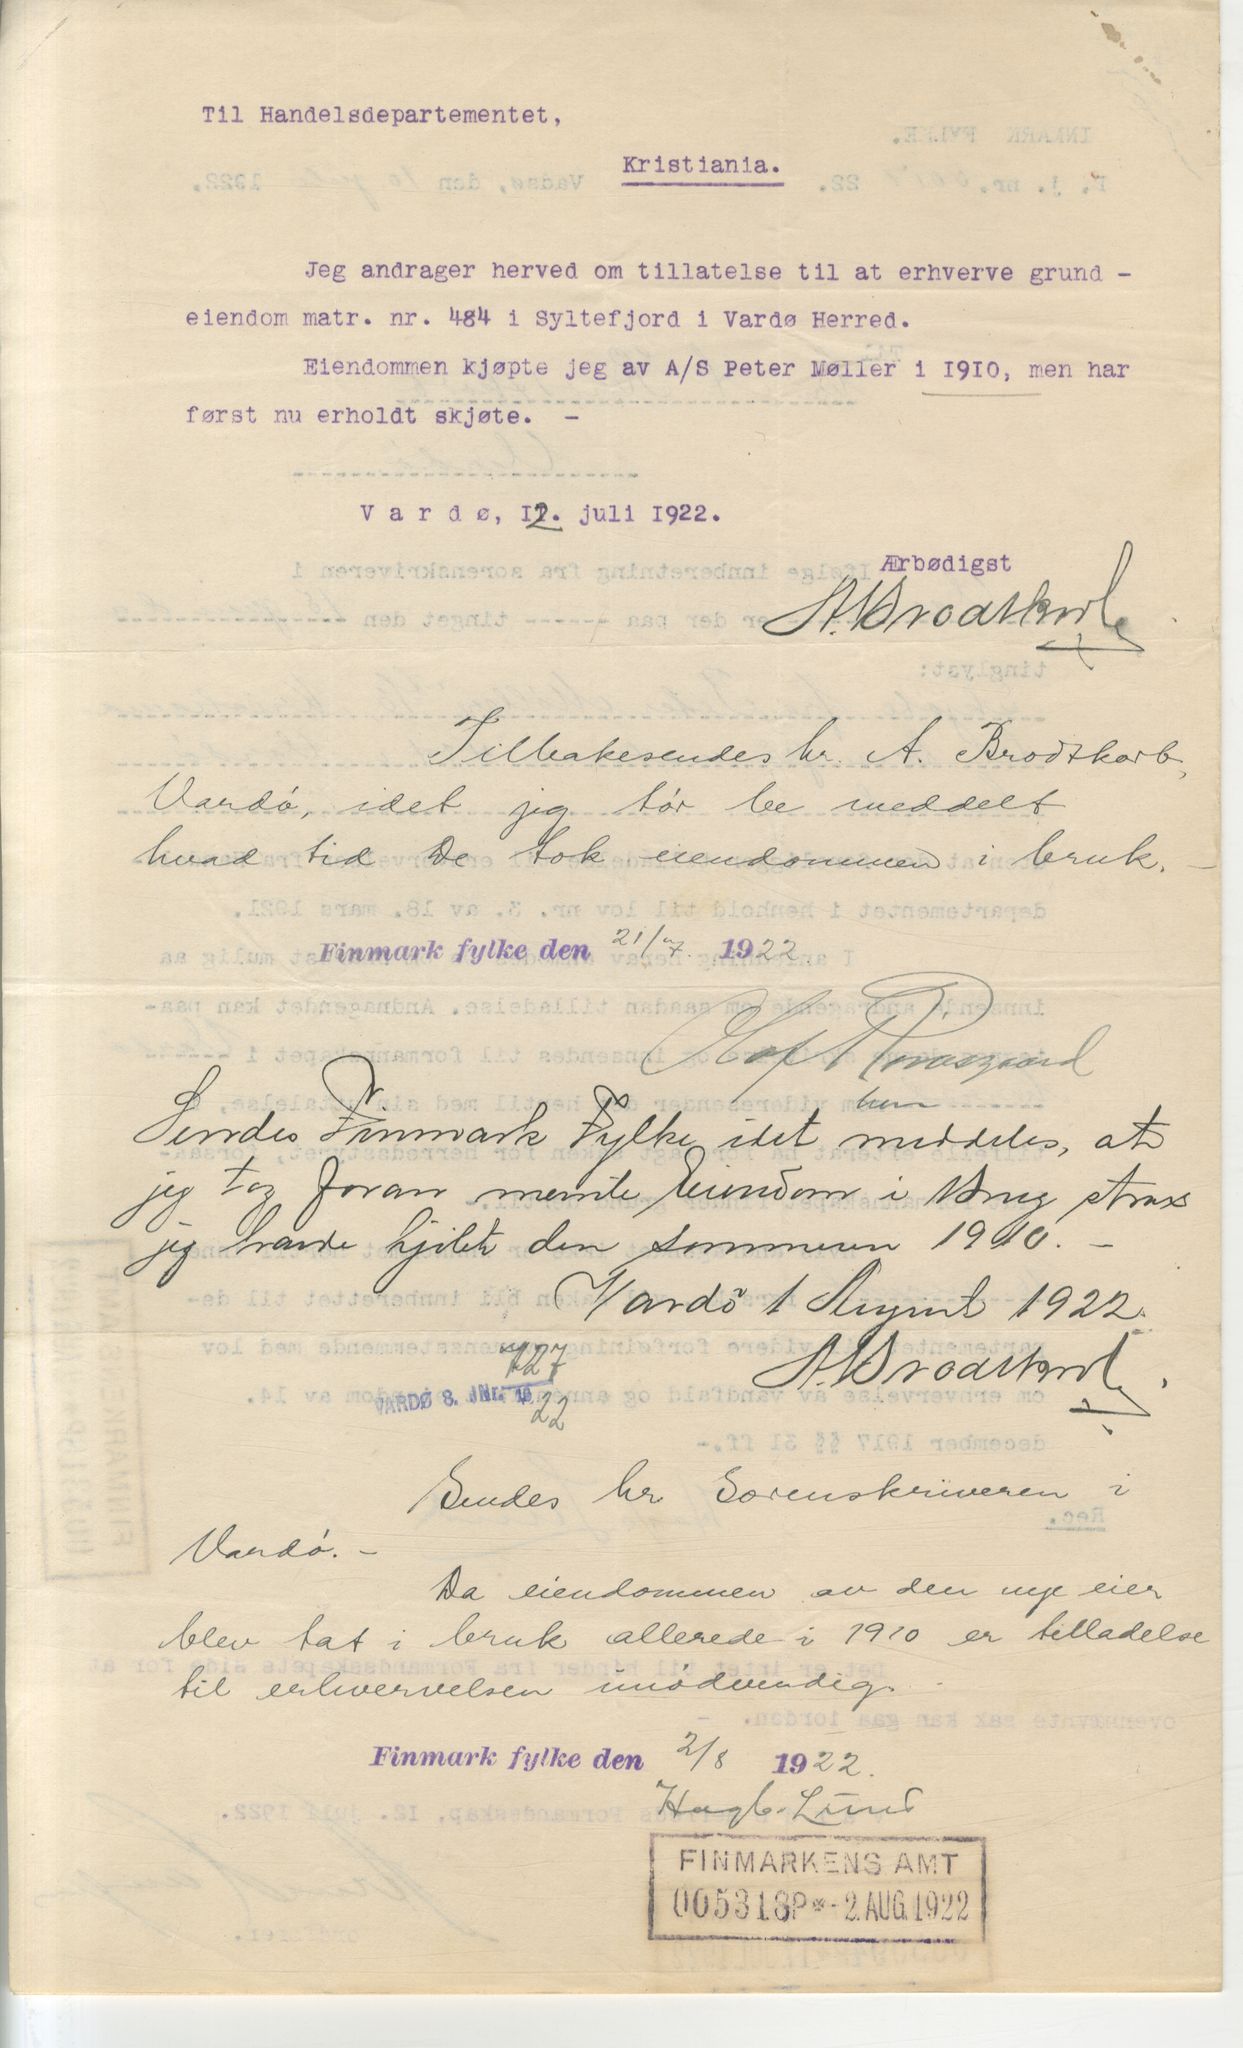 Til Handelsdepartementet,
Kristiania.
Jeg andrager herved om tillatelse til at erhverve grund -
eiendom matr. nr. 484 i Syltefjord i Vardø Herred.
Eiendommen kjøpte jeg av A/S Peter Møller i 1910, men har
først nu erholdt skjøte. -
Vardø, 12. juli 1922.
Ærbødigst
A. Brodtkorb
Tilbakesendes hr. A. Brodtkorb,
Vardø, idet jeg tør be meddelt
hvad tid De tok eiendommen i bruk. -
Finmark fylke den 21/7 1922
Sendes Finmark Fylke, idet meddeles, at
jeg tog foran nevnte Eiendom i Brug strax
jeg havde kjöbt den sommeren 1910. -
Vardö 1 August 1922.
A. Brodtkorb
727
VARDØ 8. JNr. 22
Sendes hr Sorenskriveren i
Vardø. -
Da eiendommen av den nye eier
blev tat i bruk allerede i 1910 er tilladelse
til erhvervelsen unødvendig.
Finmark fylke den 2/8 1922.
Hagb. Lund
FINMARKENS AMT
005318P*-2.AUG.1922